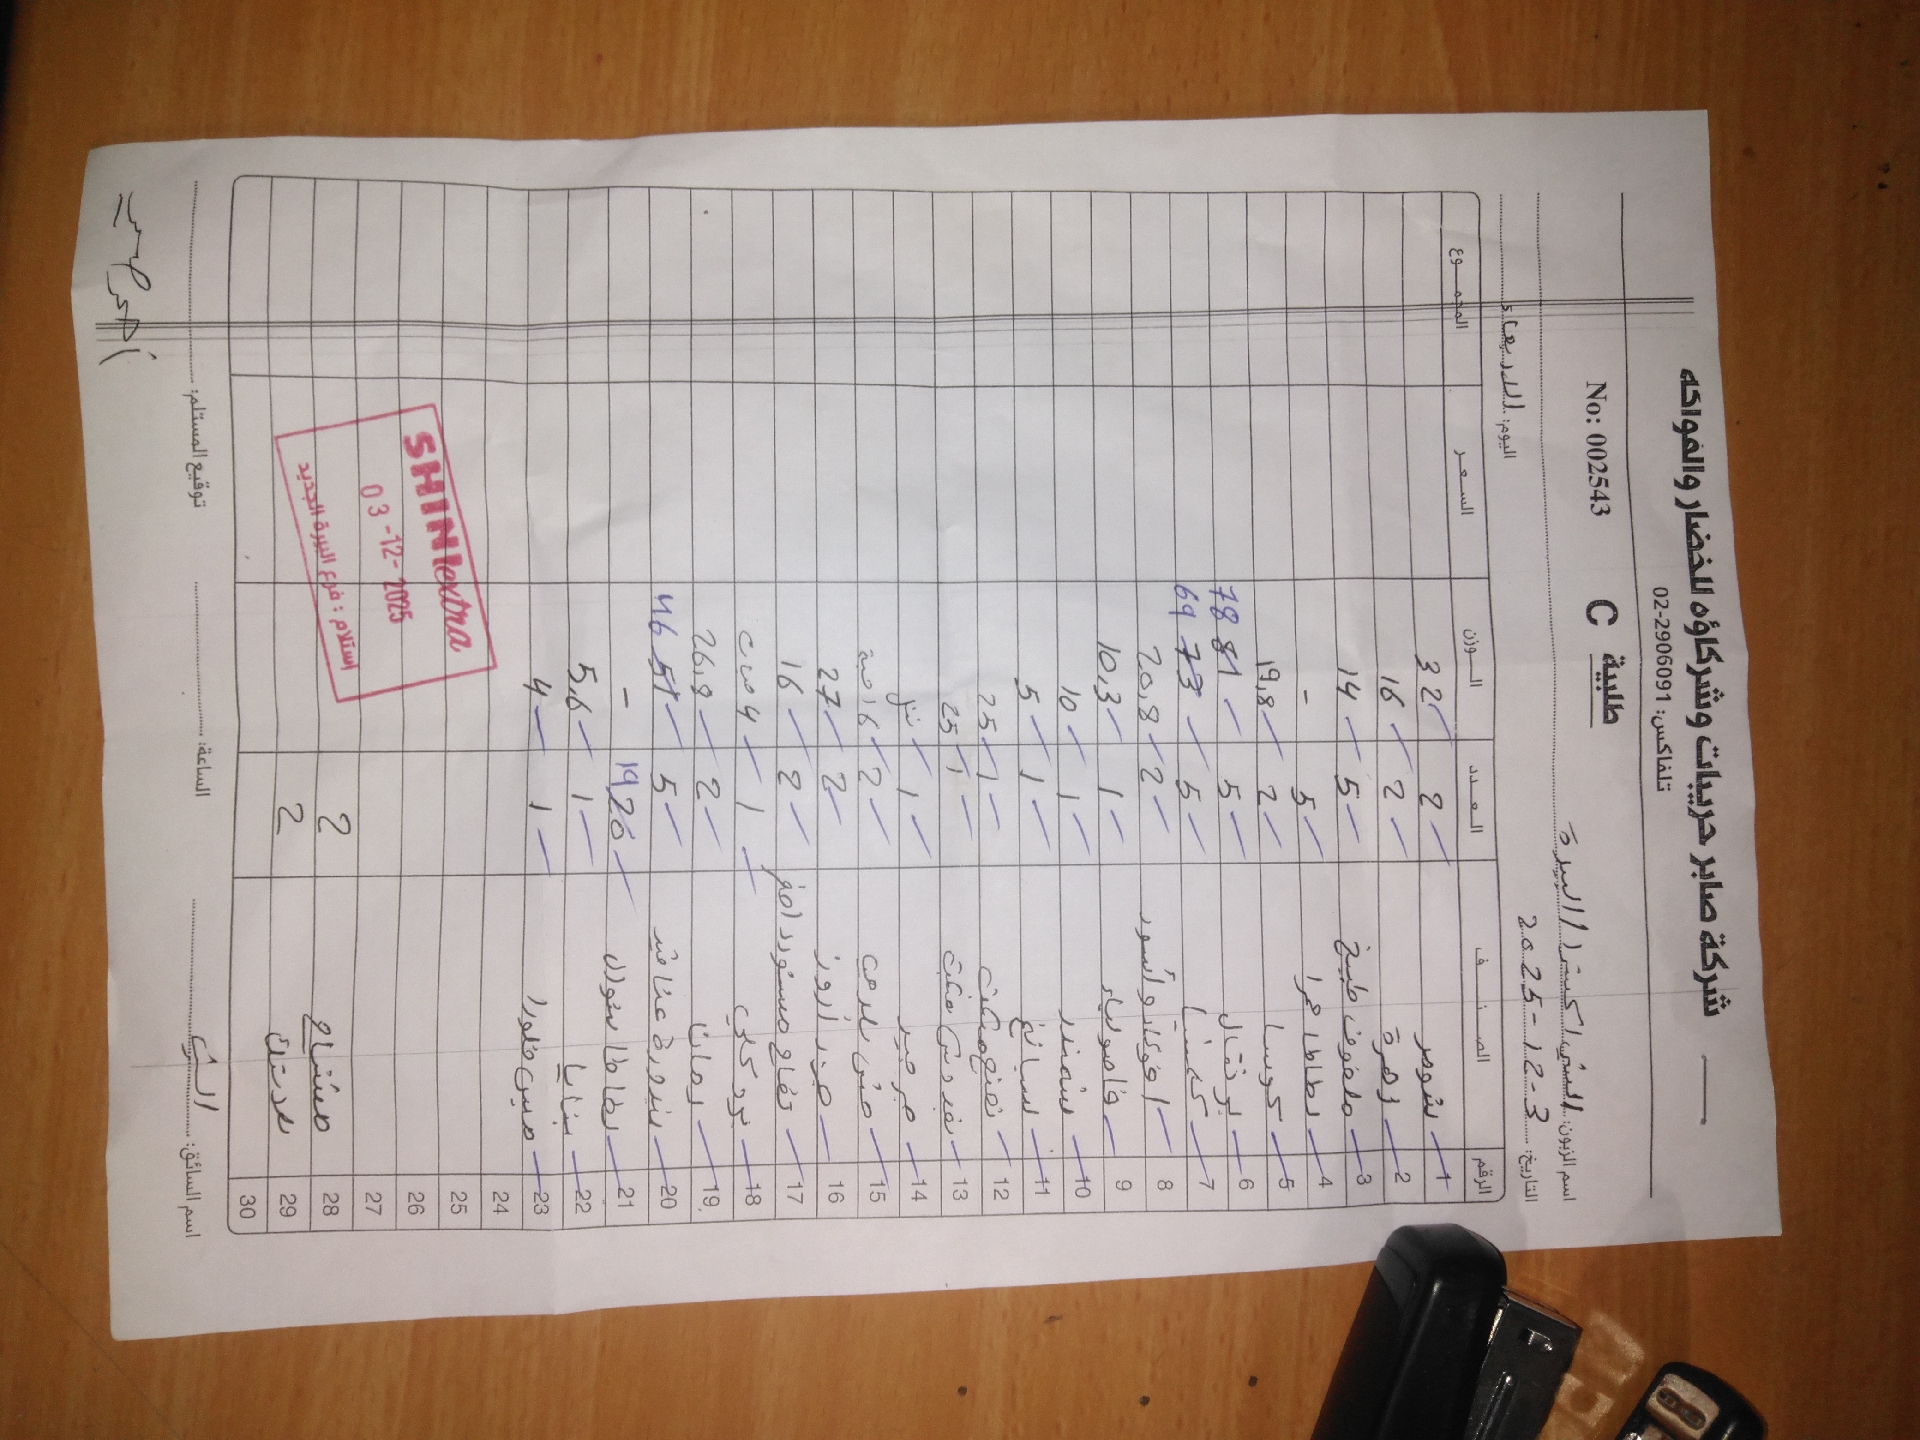 شركة صابر حريبات وشركاؤه للخضار والفواكه
تلفاكس: 02-2906091
No: 002543 C طلبية
اسم الزبون: الشني اكسترا البيرة
التاريخ: 2025-12-3 اليوم: الاربعاء
الرقم الصنف العدد الوزن السعر المجموع
1 شومر 2 32
2 زهرة 2 16
3 ملفوف طبيخ 5 14
4 بطاطا حمرا 5 -
5 كوسا 2 19,8
6 برتقال 5 81 78
7 كلمنتينا 5 73 69
8 افوكادو أسود 2 20,8
9 فاصولياء 1 10,3
10 شمندر 1 10
11 سبانخ 1 5
12 نعنع 1 25
13 بقدونس 1 25
14 جرجير 1
15 2 16 حبة
16 2 27
17 تفاح مستورد احمر 2 16
18 بروكلي 1 4
19 رمان 2 26,8
20 بندورة عناقيد 5 51 46
21 بطاطا 20 19 -
22 1 5,6
23 1 4
24
25
26
27
28 مشتاح 2
29 2
30
SHINI extra
03-12-2025
استلام: فرع البيرة الجديد
اسم السائق: الساعة: توقيع المستلم: